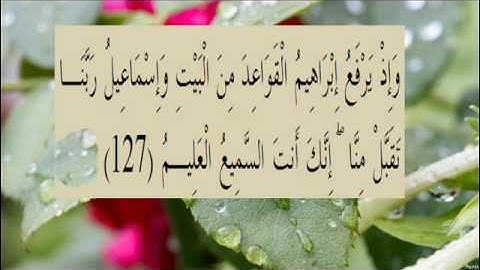 وَإِذْ يَرْفَعُ إِبْرَاهِيمُ الْقَوَاعِدَ مِنَ الْبَيْتِ وَإِسْمَاعِيلُ رَبَّنَـــا
تَقَبَّلْ مِنَّا ۖ إِنَّكَ أَنتَ السَّمِيعُ الْعَلِيـــمُ (127)